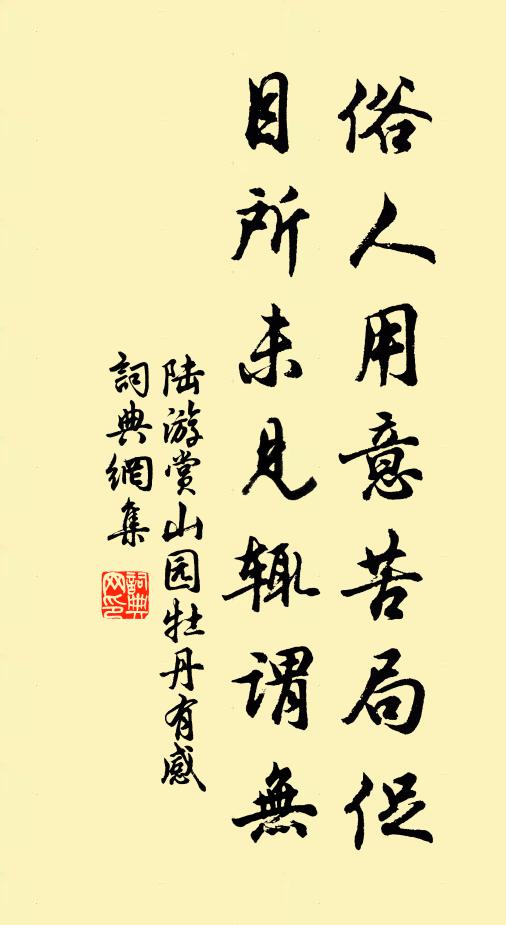 俗人用意苦局促
目所未见辄謂無
陆游赏山园牡丹有感
詞典網集
詞典网印